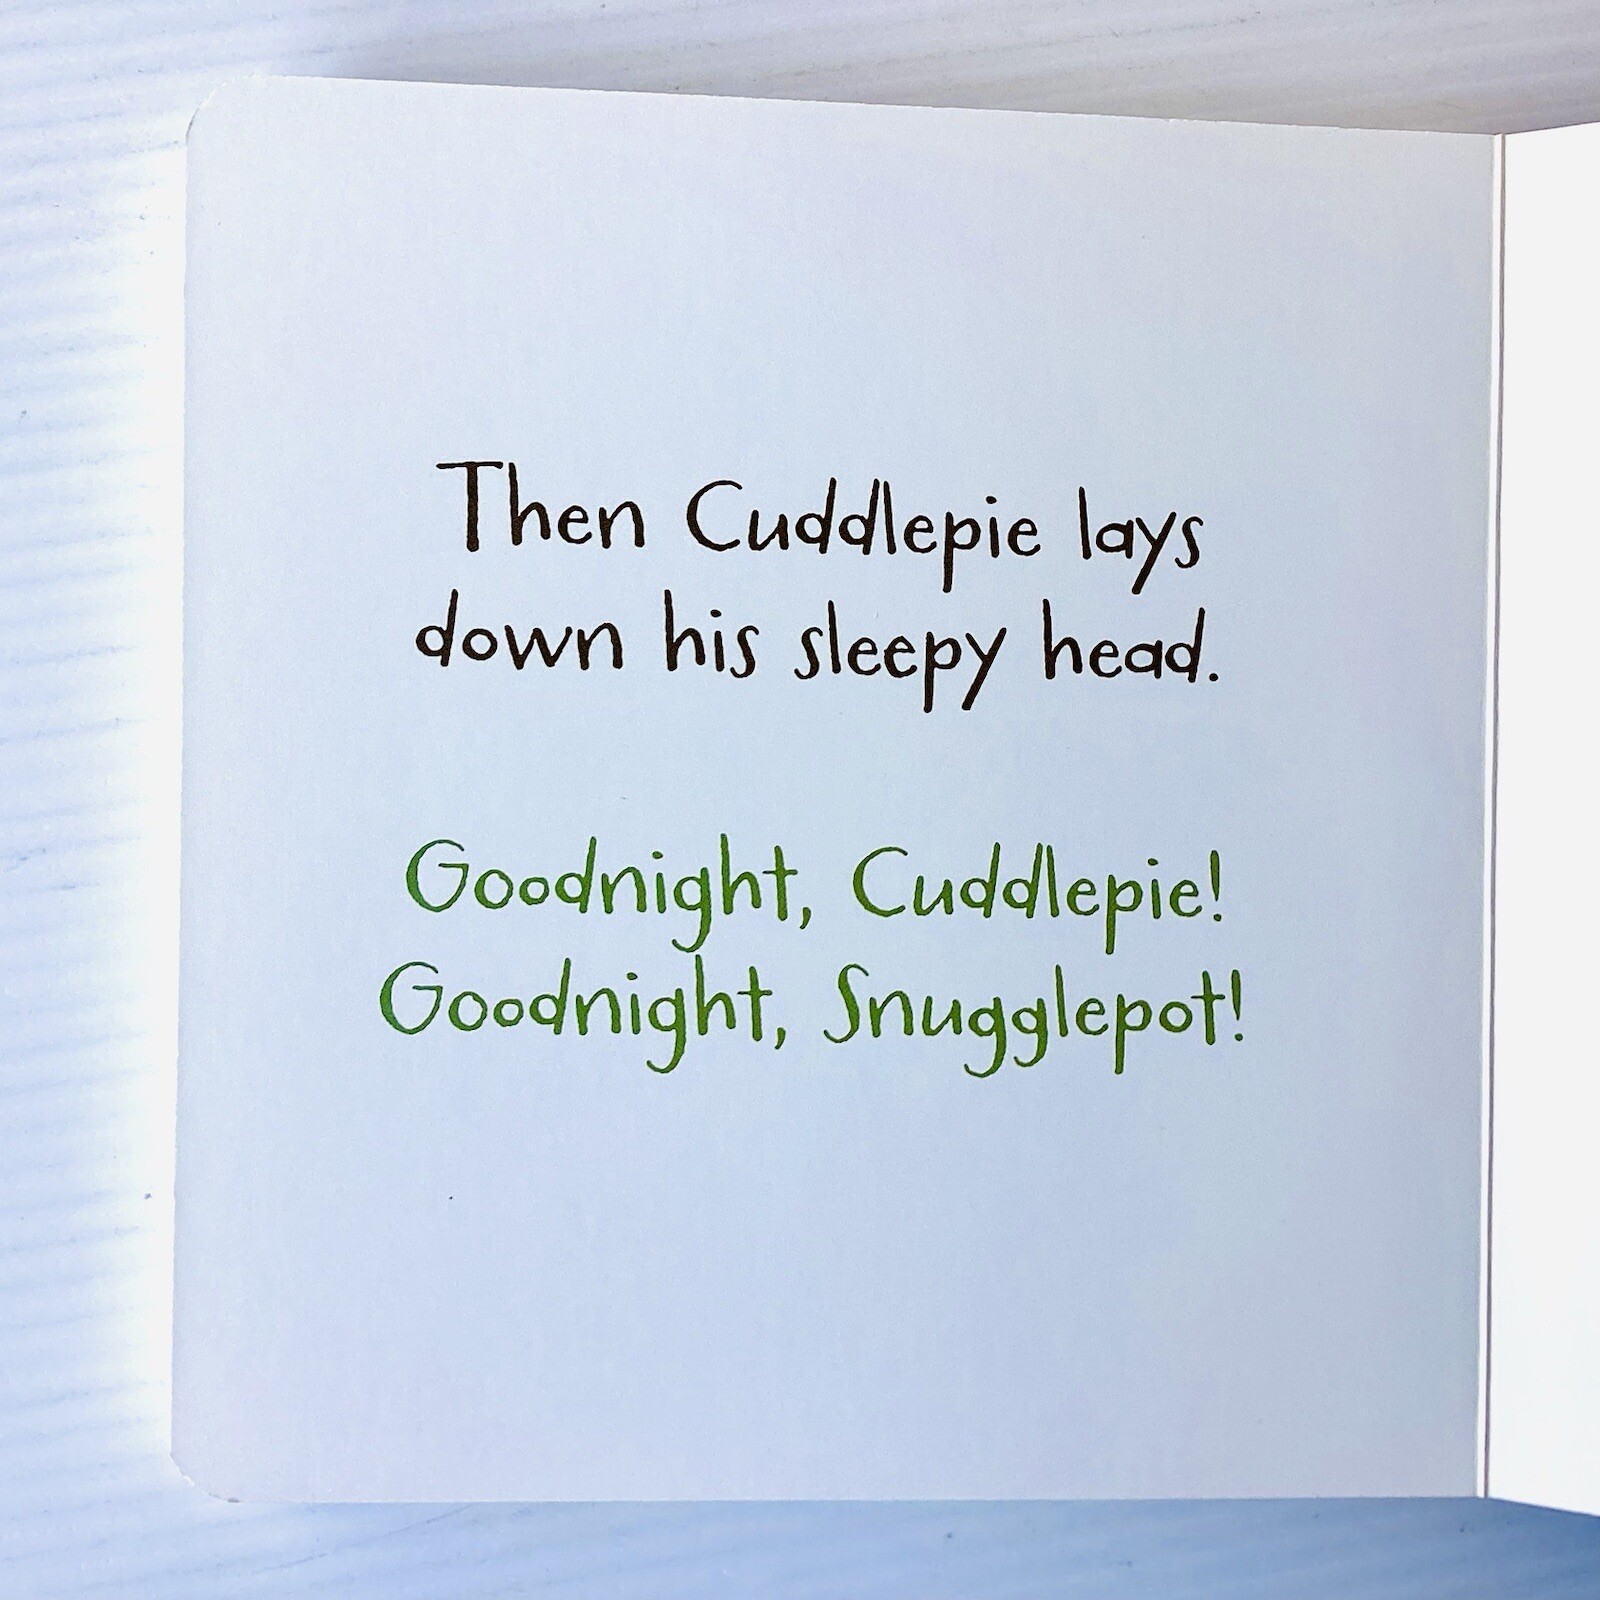 Then Cuddlepie lays
down his sleepy head.
Goodnight, Cuddlepie!
Goodnight, Snugglepot!